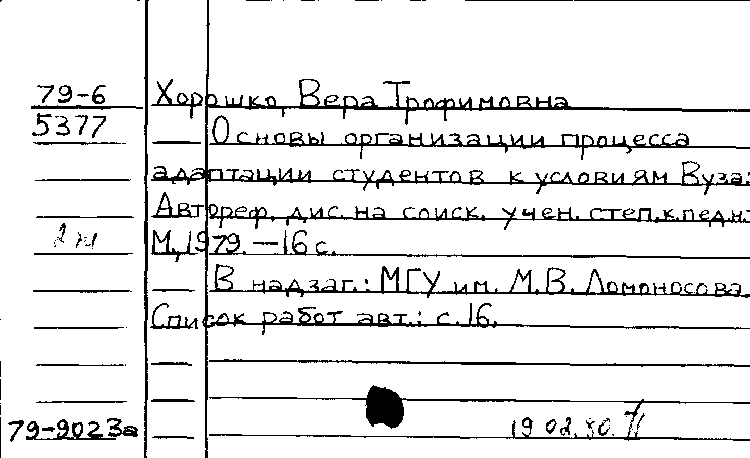 79-6 Хорошко, Вера Трофимовна
5377 Основы организации процесса
адаптации студентов к условиям Вуза:
Автореф. дис. на соиск. учен. степ. к. пед. н.
М., 1979. — 16 с.
В надзаг.: МГУ им. М.В. Ломоносова.
Список работ авт.: с. 16.
79-9023а 19 02. 80.